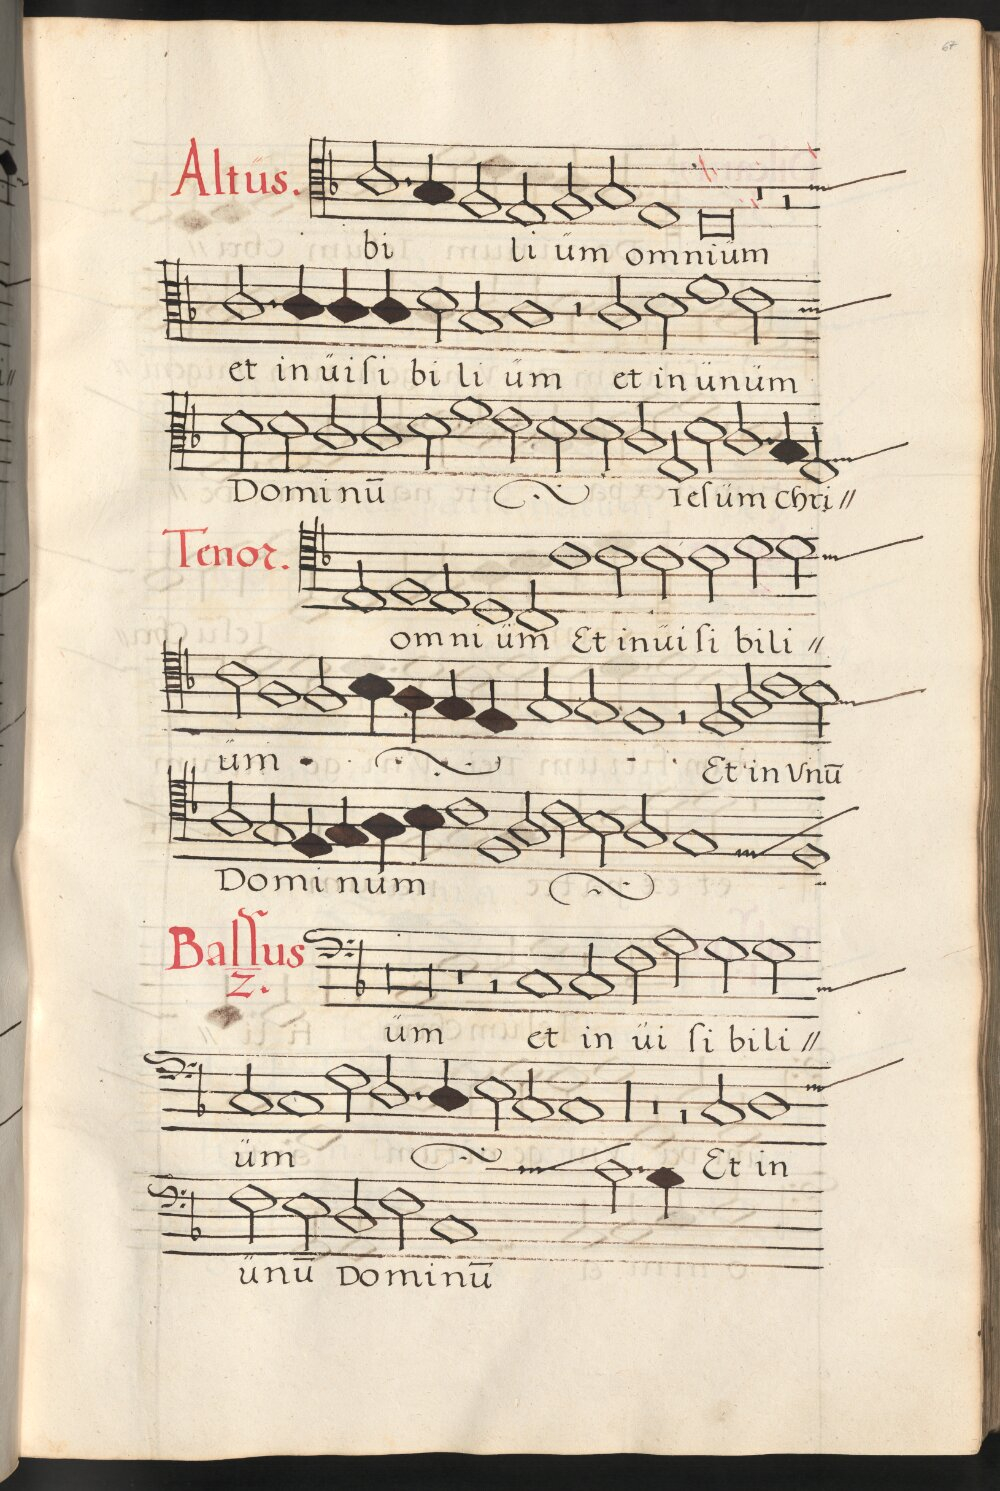 67
Altus.
bi li um omnium
et inuisi bi li um et in unum
Dominū Iesum Chri //
Tenor.
omni um Et inuisi bili //
um Et in Vnū
Dominum
Bassus
2.
um et in ui si bili //
um Et in
unū Dominū